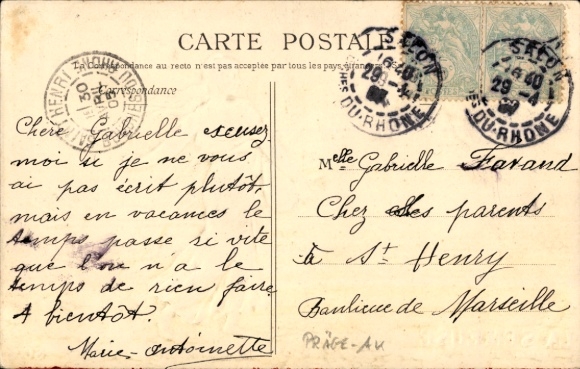 CARTE POSTALE
La Correspondance au recto n'est pas acceptée par tous les pays étrangers
Correspondance
Chère Gabrielle excusez
moi si je ne vous
ai pas écrit plutôt,
mais en vacances le
temps passe si vite
que l'on n'a le
temps de rien faire.
A bientôt.
Marie-Antoinette
SALON
16 40
29 -4
DU-RHONE
SALON
16 40
29 -4
DU-RHONE
Melle Gabrielle Favand
Chez ses parents
à St Henry
Banlieue de Marseille
PRÄGE-AK